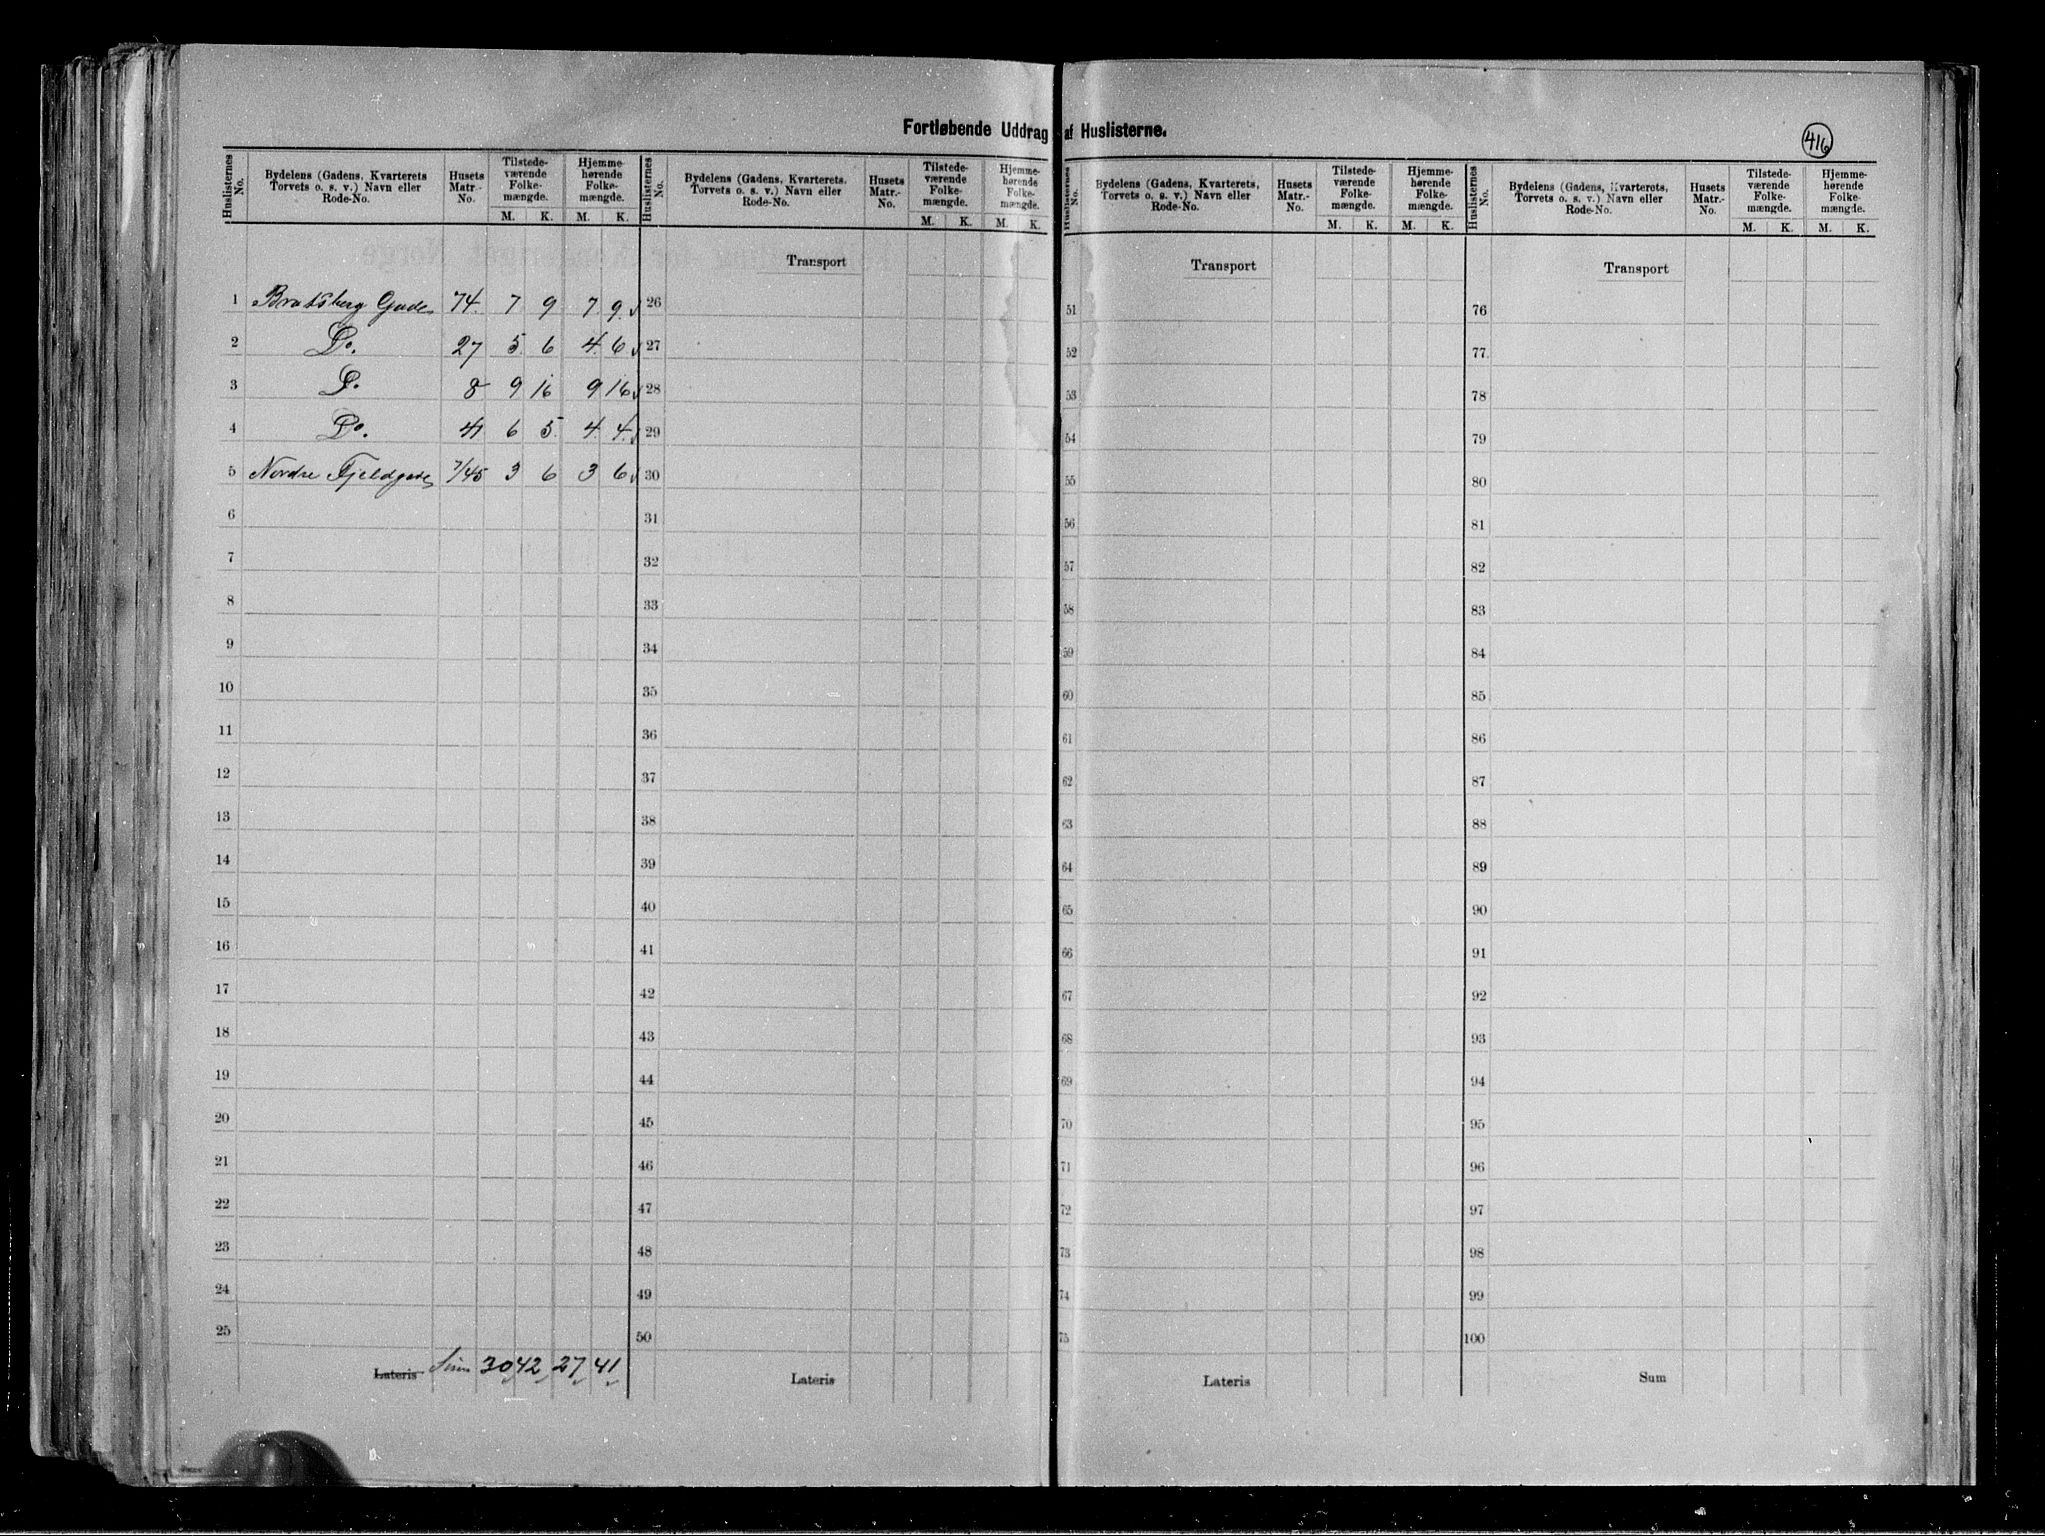 Fortløbende Uddrag af Huslisterne.
416
Huslisternes No. | Bydelens (Gadens, Kvarterets, Torvets o. s. v.) Navn eller Rode-No. | Husets Matr.-No. | Tilstedeværende Folkemængde. M. K. | Hjemmehørende Folkemængde. M. K.
Huslisternes No. | Bydelens (Gadens, Kvarterets, Torvets o. s. v.) Navn eller Rode-No. | Husets Matr.-No. | Tilstedeværende Folkemængde. M. K. | Hjemmehørende Folkemængde. M. K.
Huslisternes No. | Bydelens (Gadens, Kvarterets, Torvets o. s. v.) Navn eller Rode-No. | Husets Matr.-No. | Tilstedeværende Folkemængde. M. K. | Hjemmehørende Folkemængde. M. K.
Huslisternes No. | Bydelens (Gadens, Kvarterets, Torvets o. s. v.) Navn eller Rode-No. | Husets Matr.-No. | Tilstedeværende Folkemængde. M. K. | Hjemmehørende Folkemængde. M. K.
1 Bratsberg Gade 74. 7 9 7 9.
2 Do. 27 5 6 4 6
3 Do 8 9 16 9 16
4 Do. 41 6 5 4 4
5 Nordre Fjeldgade 7/45 3 6 3 6
6
7
8
9
10
11
12
13
14
15
16
17
18
19
20
21
22
23
24
25
Lateris Sum 30 42 27 41
Transport
26
27
28
29
30
31
32
33
34
35
36
37
38
39
40
41
42
43
44
45
46
47
48
49
50
Lateris
Transport
51
52
53
54
55
56
57
58
59
60
61
62
63
64
65
66
67
68
69
70
71
72
73
74
75
Lateris
Transport
76
77
78
79
80
81
82
83
84
85
86
87
88
89
90
91
92
93
94
95
96
97
98
99
100
Sum